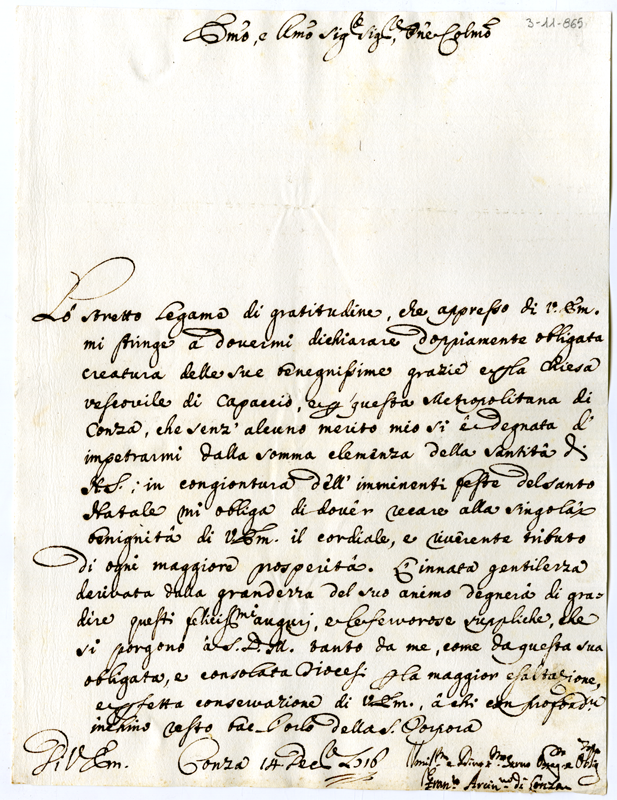 3-11-865
Emõ, e Rmõ Sig.re Sig.re, Pñe Colmõ
Lo stretto legame di gratitudine, che appresso di V. Em.
mi stringe à dovermi dichiarare doppiamente obligata
creatura delle sue benegnissime grazie e p la Chiesa
vescovile di Capaccio, e p questa Metropolitana di
Conza, che senz' alcuno merito mio si è degnata d'
impetrarmi dalla somma clemenza della Santità di
N.S.; in congiontura dell' imminenti feste del santo
Natale mi obliga di dover recare alla singolar
benignità di V. Em. il cordiale, e riverente tributo
di ogni maggiore prosperità. L'innata gentilezza
derivata dalla grandezza del suo animo degnerà di gra-
dire questi feliciss.mi augurj, e le fervorose suppliche, che
si porgono à S.D.M. tanto da me, come da questa sua
obligata, e consolata Diocesi p la maggior esaltazione,
e pfetta conservazione di V. Em., à chi con profond.o
inchino resto bac.o l'orlo della S. Porpora
Di V. Em. Conza 14 Dec.re 1716
Fran.o Arciv.vo di Conza